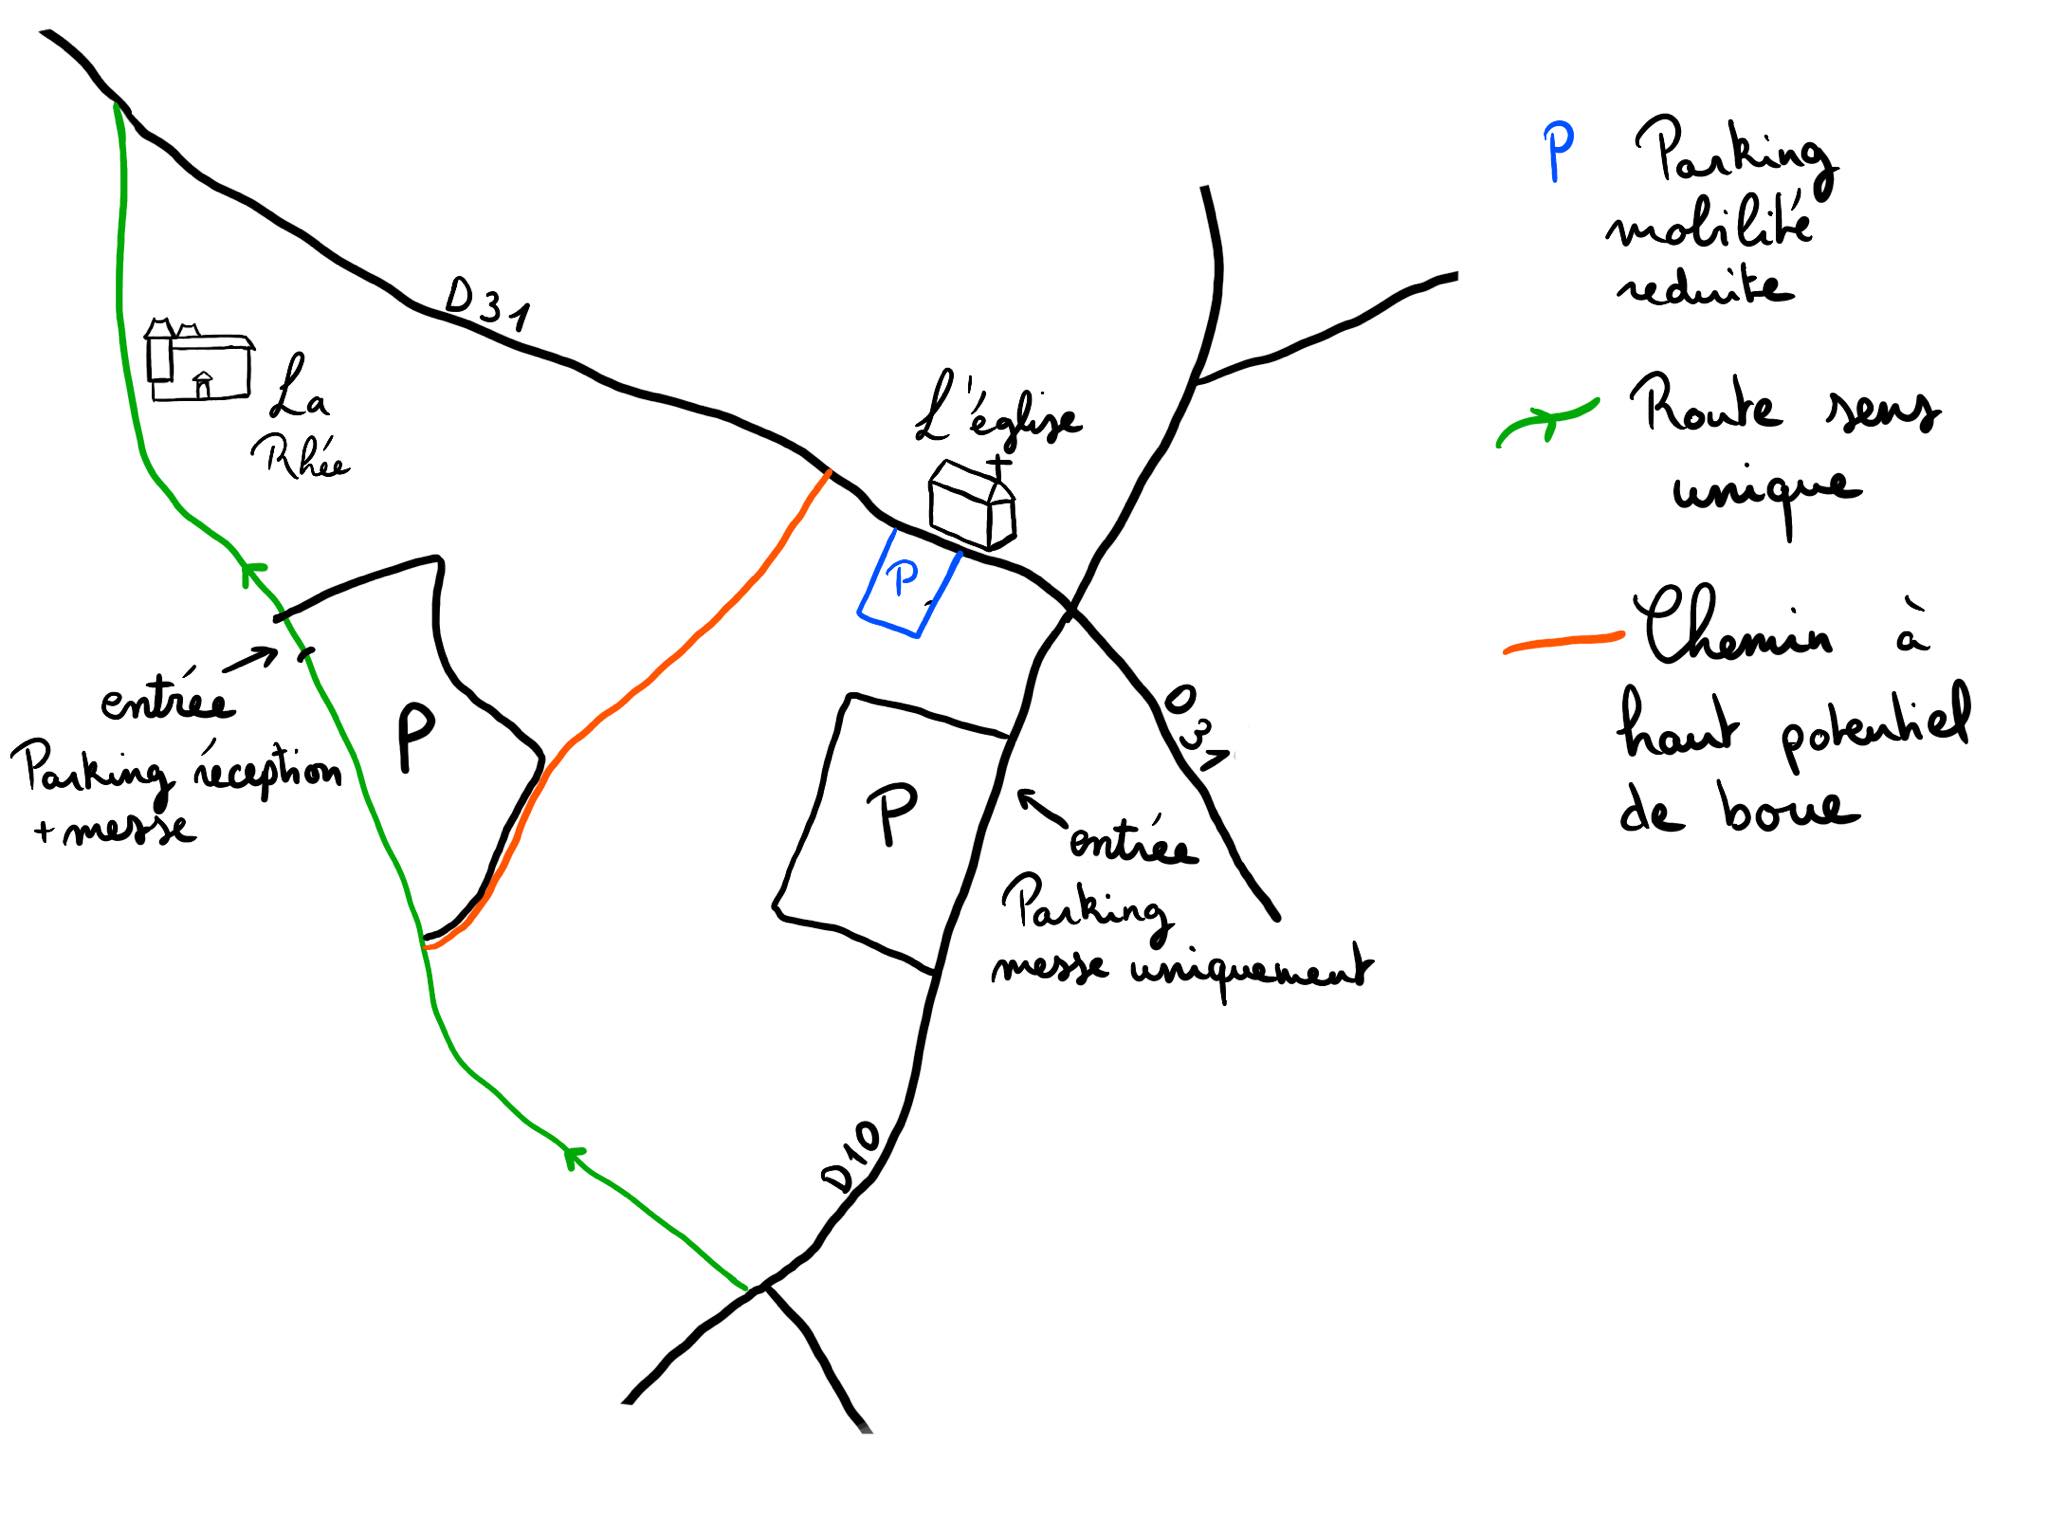 D31
La
Rhée
L'église
P
entrée
Parking réception
+ messe
P
P
D31
entrée
Parking
messe uniquement
D10
P Parking
mobilité
reduite
Route sens
unique
Chemin à
haut potentiel
de boue